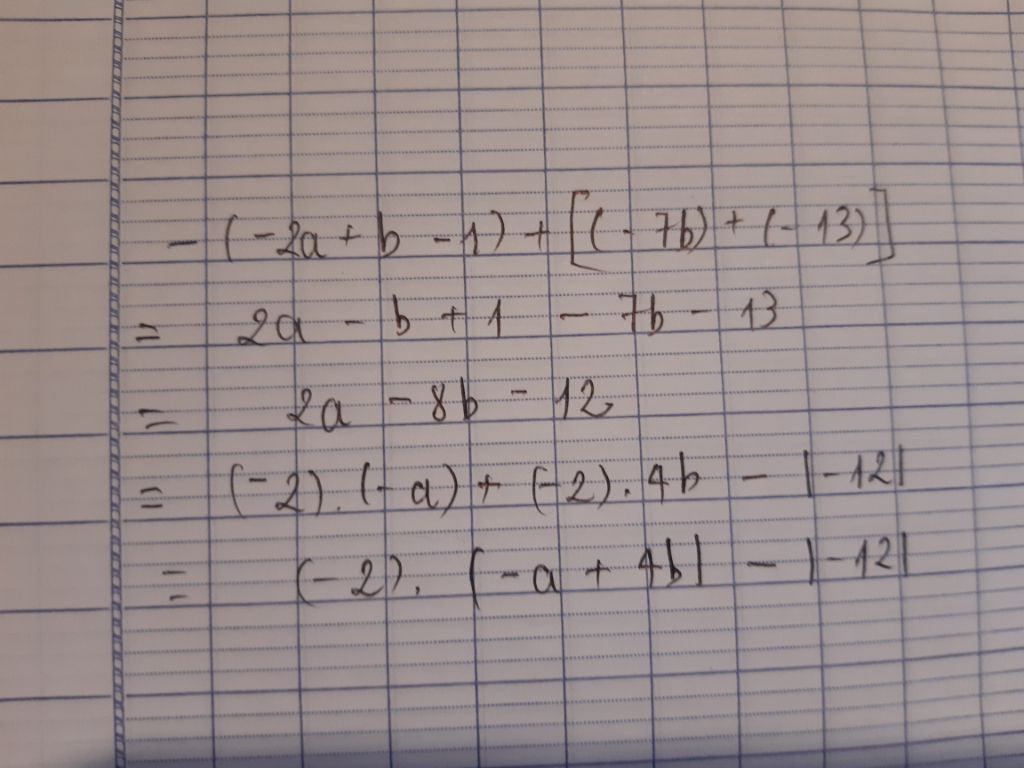 - (-2a + b - 1) + [(- 7b) + (- 13)]
= 2a - b + 1 - 7b - 13
= 2a - 8b - 12
= (-2). (- a) + (-2). 4b - |-12|
= (-2). (-a + 4b) - |-12|